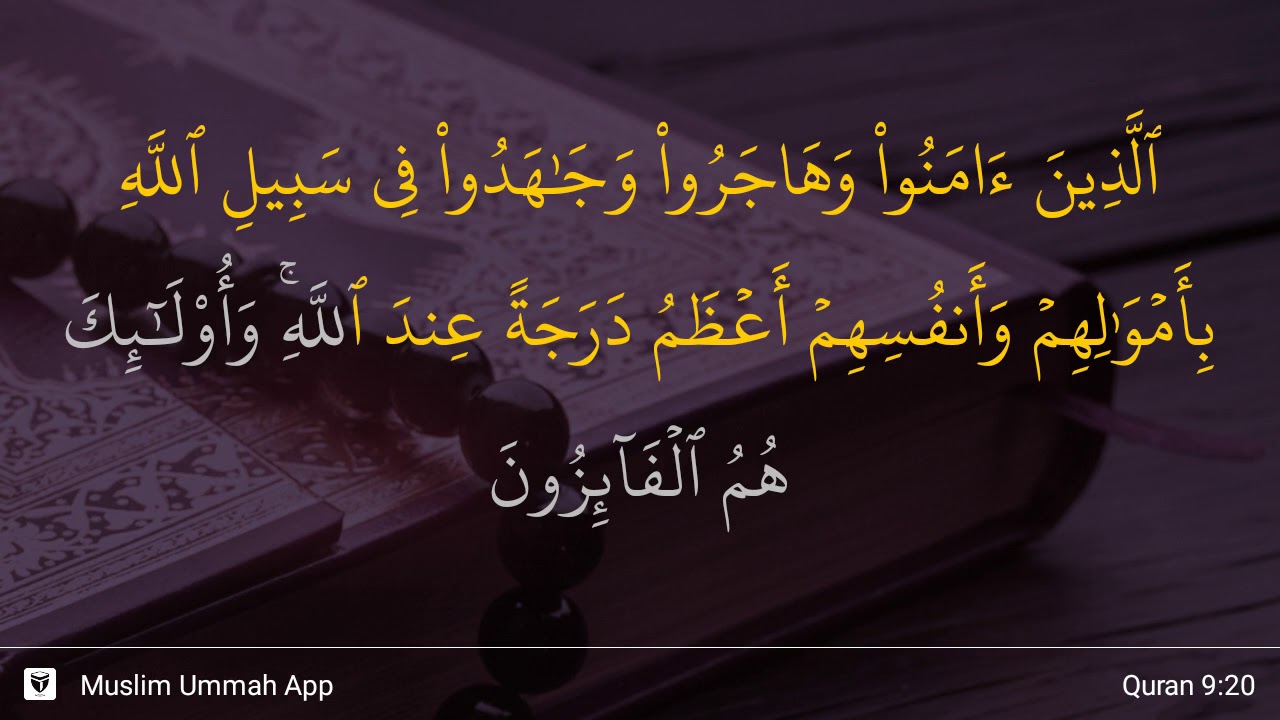 ٱلَّذِينَ ءَامَنُوا۟ وَهَاجَرُوا۟ وَجَـٰهَدُوا۟ فِى سَبِيلِ ٱللَّهِ
بِأَمْوَٰلِهِمْ وَأَنفُسِهِمْ أَعْظَمُ دَرَجَةً عِندَ ٱللَّهِ ۚ وَأُو۟لَـٰٓئِكَ
هُمُ ٱلْفَآئِزُونَ
Muslim Ummah App
Quran 9:20